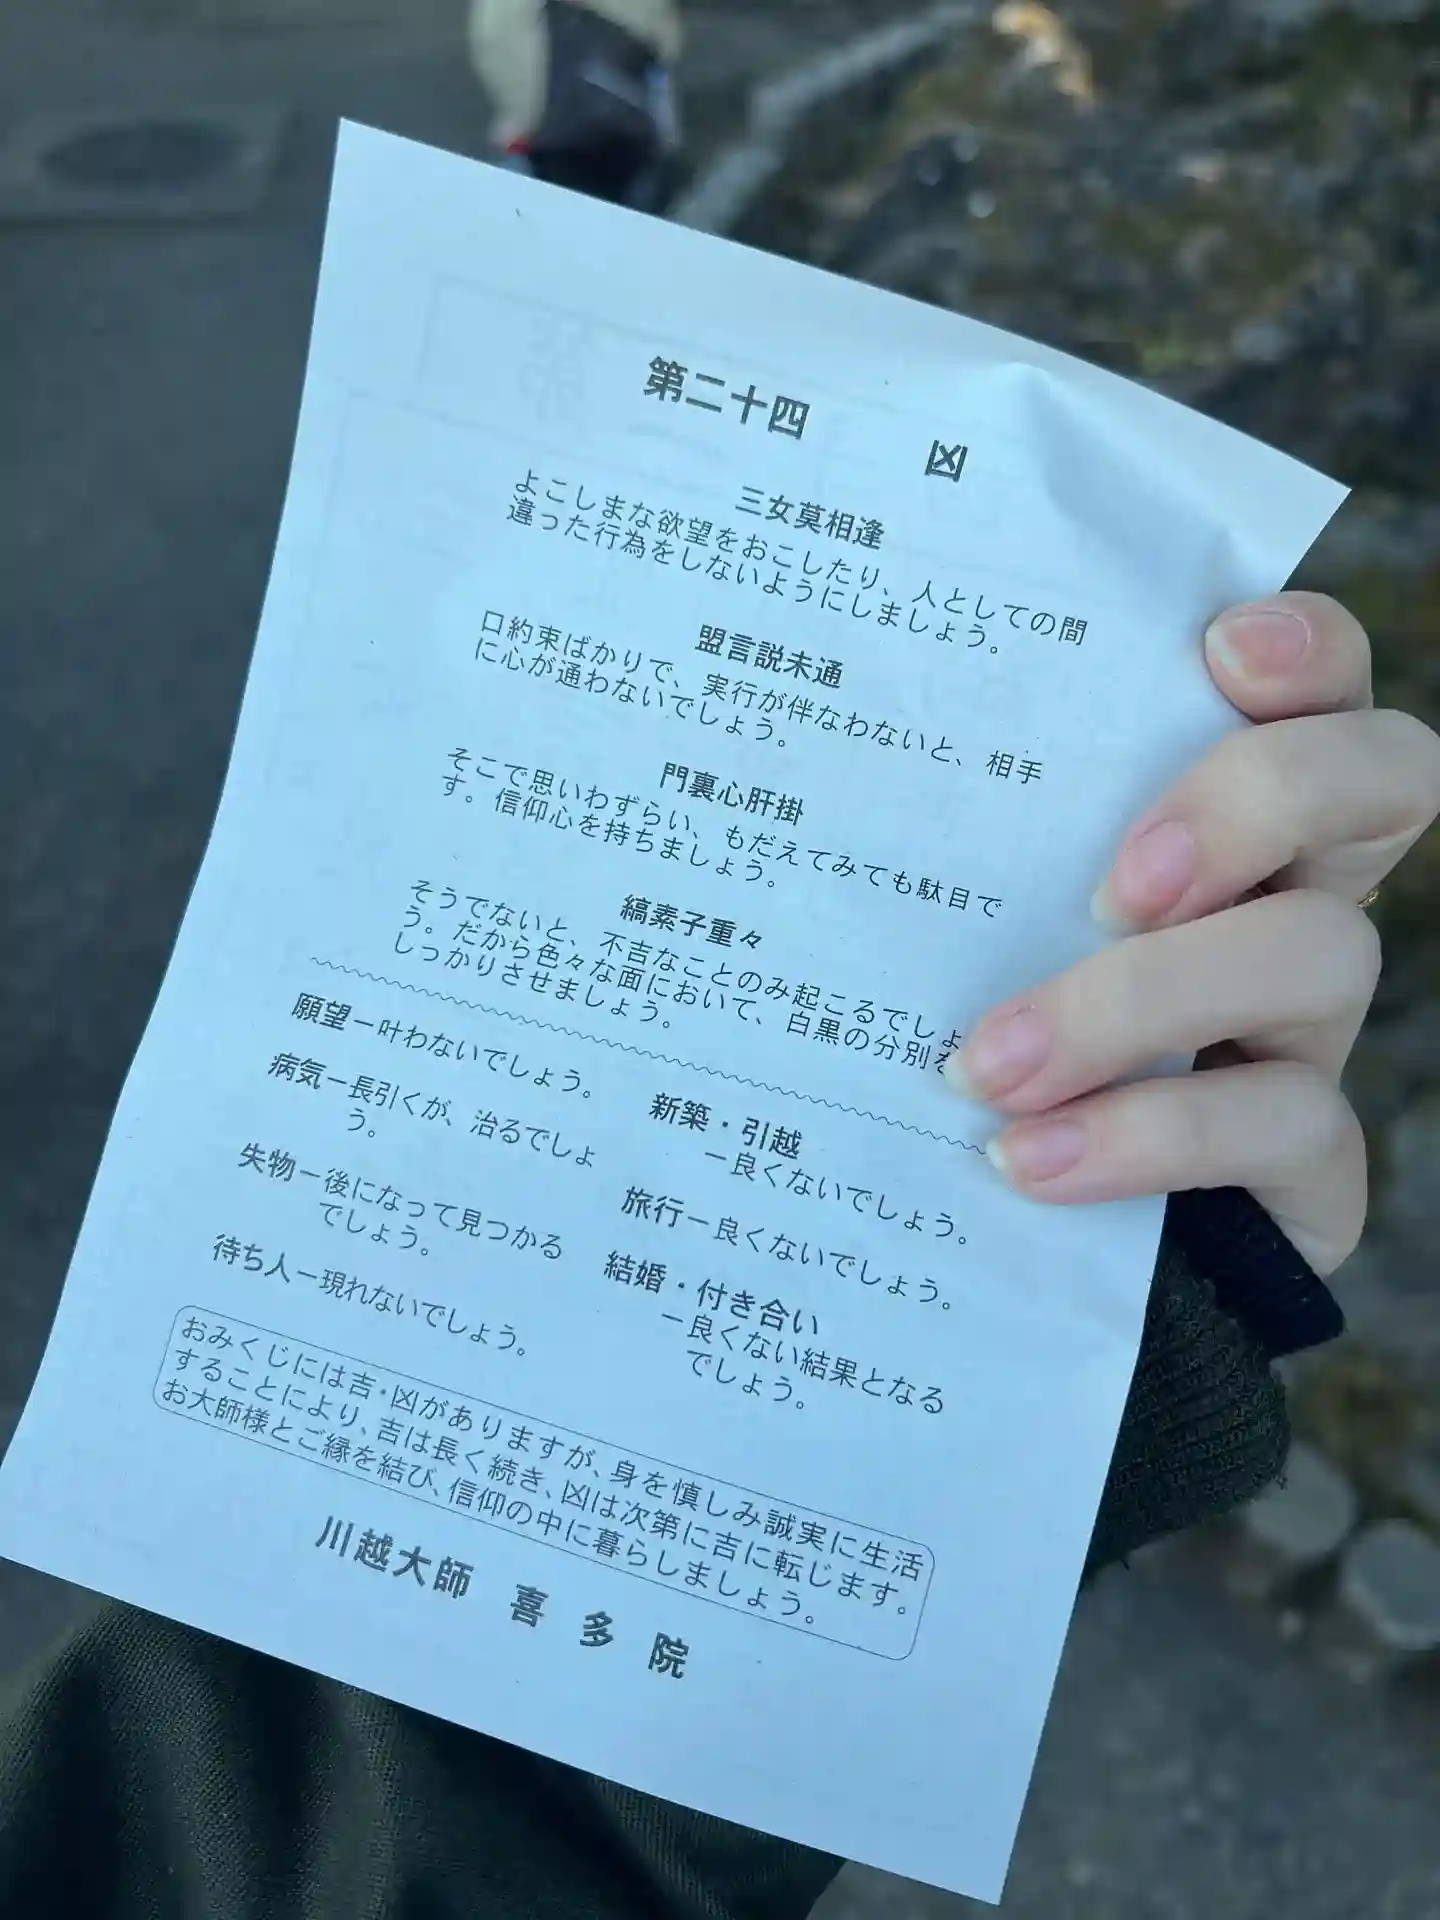 第二十四 凶
三女莫相逢
よこしまな欲望をおこしたり、人としての間
違った行為をしないようにしましょう。
盟言説未通
口約束ばかりで、実行が伴なわないと、相手
に心が通わないでしょう。
門裏心肝掛
そこで思いわずらい、もだえてみても駄目で
す。信仰心を持ちましょう。
縞素子重々
そうでないと、不吉なことのみ起こるでしょ
う。だから色々な面において、白黒の分別を
しっかりさせましょう。
願望ー叶わないでしょう。
病気ー長引くが、治るでしょ
う。
失物ー後になって見つかる
でしょう。
待ち人ー現れないでしょう。
新築・引越
ー良くないでしょう。
旅行ー良くないでしょう。
結婚・付き合い
ー良くない結果となる
でしょう。
おみくじには吉・凶がありますが、身を慎しみ誠実に生活
することにより、吉は長く続き、凶は次第に吉に転じます。
お大師様とご縁を結び、信仰の中に暮らしましょう。
川越大師 喜多院